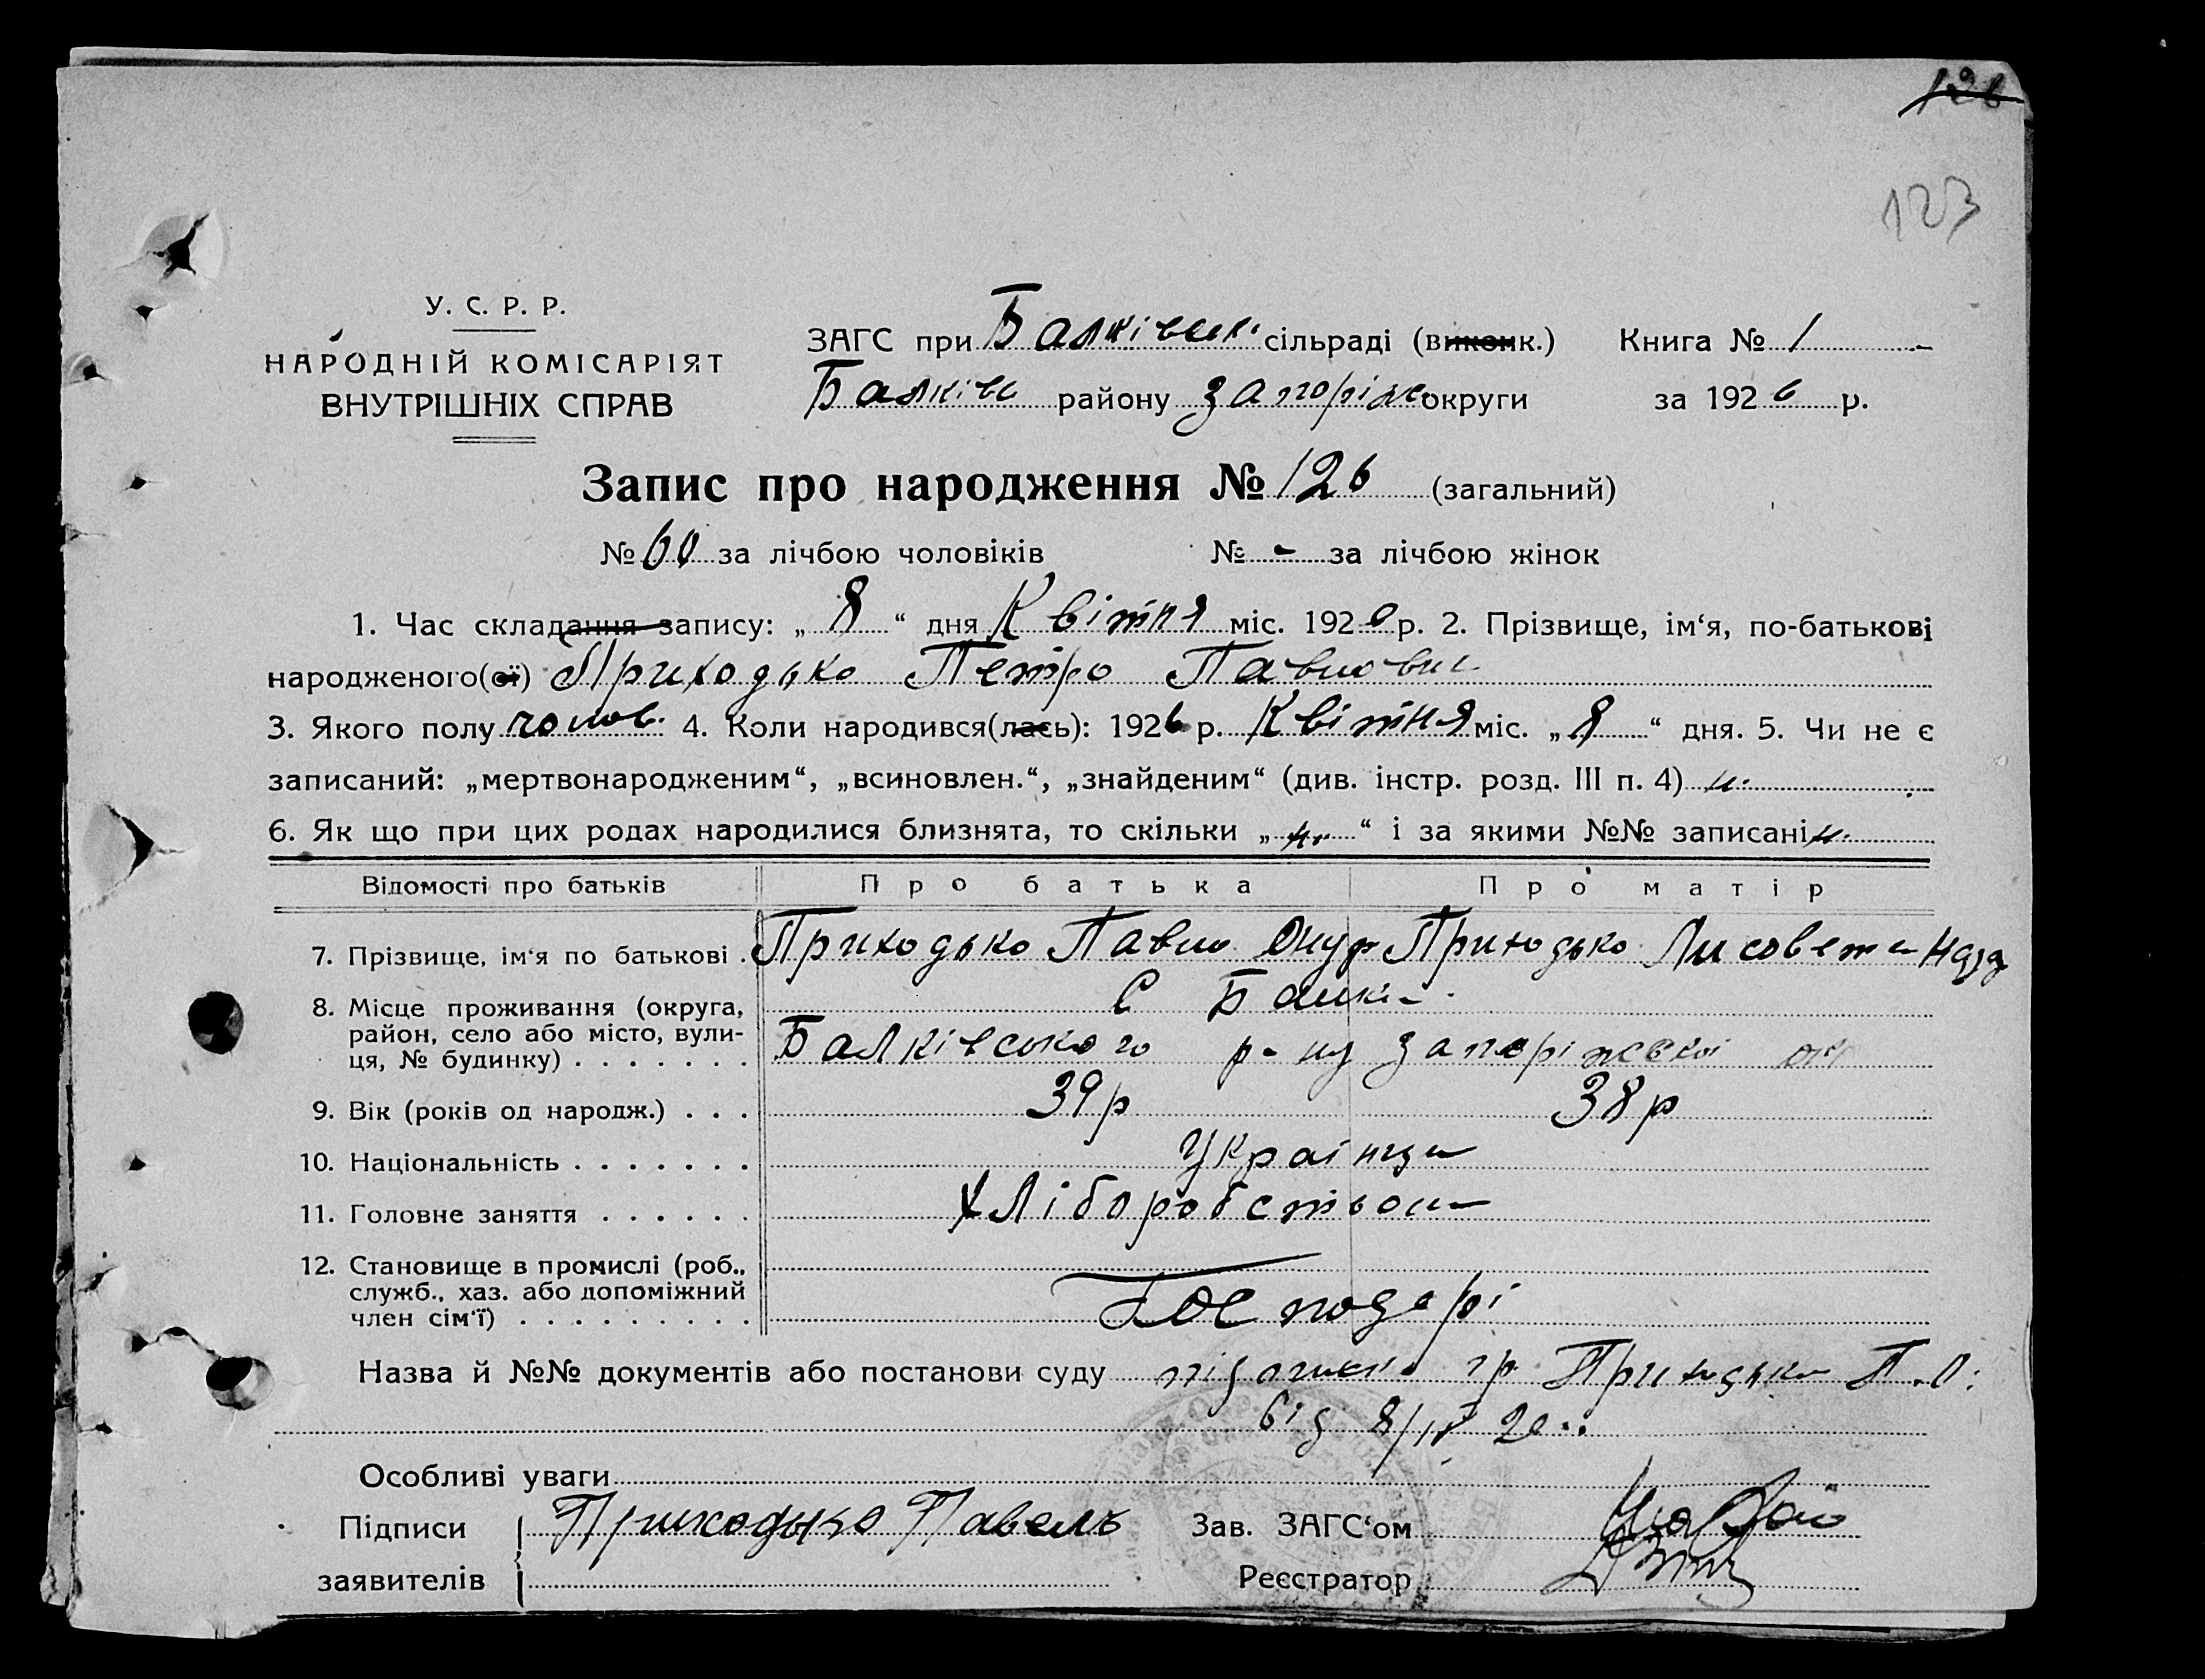 126
123
У. С. Р. Р.
НАРОДНІЙ КОМІСАРІЯТ
ВНУТРІШНІХ СПРАВ
ЗАГС при Балківськ. сільраді (виконк.) Книга № 1
Балків району Запоріж. округи за 1926 р.
Запис про народження № 126 (загальний)
№ 60 за лічбою чоловіків № - за лічбою жінок
1. Час складання запису: „ 8 “ дня Квітня міс. 1926 р. 2. Прізвище, ім‘я, по-батькові
народженого(ої) Приходько Петро Павлович
3. Якого полу чолов. 4. Коли народився(лась): 1926 р. Квітня міс. „ 8 “ дня. 5. Чи не є
записаний: „мертвонародженим“, „всиновлен.“, „знайденим“ (див. інстр. розд. III п. 4) н.
6. Як що при цих родах народилися близнята, то скільки „ н. “ і за якими №№ записані н.
Відомості про батьків Про батька Про матір
7. Прізвище, ім‘я по батькові . Приходько Павло Онуф Приходько Лисовета
8. Місце проживання (округа, С Балки
район, село або місто, вули-
ця, № будинку) . . . . . . . Балківського р-ну Запоріжської окр
9. Вік (років од народж.) . . . 39 р 38 р
10. Національність . . . . . . . Українци
11. Головне заняття . . . . . . Хліборобством
12. Становище в промислі (роб.,
служб., хаз. або допоміжний
член сім‘ї) . . . . . . . . . Господарі
Назва й №№ документів або постанови суду гр. Приходько П. О.
від 8/IV 26
Особливі уваги
Підписи Приходько Павелъ Зав. ЗАГС‘ом
заявителів Реєстратор